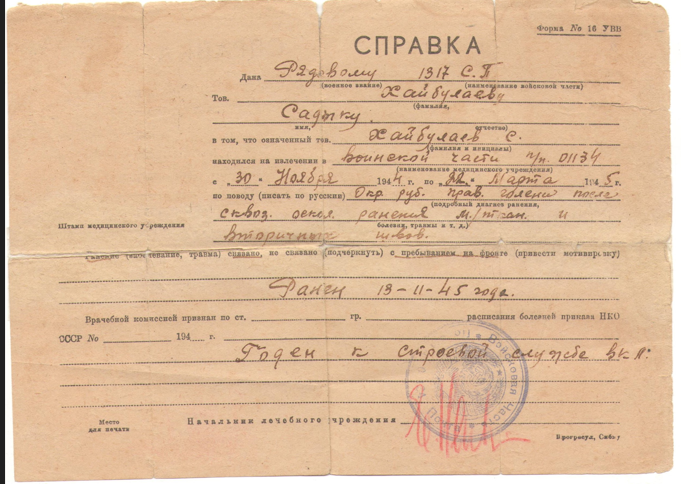 Форма № 16 УВВ
СПРАВКА
Дана Рядовому 1317 С.П
(военное звание) (наименование войсковой части)
Тов. Хайбулаеву
(фамилия,
Садыку.
имя, отчество)
в том, что означенный тов. Хайбулаев С.
(фамилия и инициалы)
находился на излечении в воинской части п/п. 01134
(наименование медицинского учреждения)
с „30“ Ноября 1944 г. по Марта 1945 г.
по поводу (писать по русски) Окр. руб. прав. голени после
(подробный диагноз ранения,
сквоз. оскол ранения м./ткан. и
Штамп медицинского учреждения
болезни, травмы и т. д.)
вторичных швов.
(заболевание, травма) связано, не связано (подчеркнуть) с пребыванием на фронте (привести мотивировку)
Ранен 13-11-45 года.
Врачебной комиссией признан по ст. гр. расписания болезней приказа НКО
СССР № 194 г.
Годен к строевой службе
Войсковая Часть
Место
для печати
Начальник лечебного учреждения